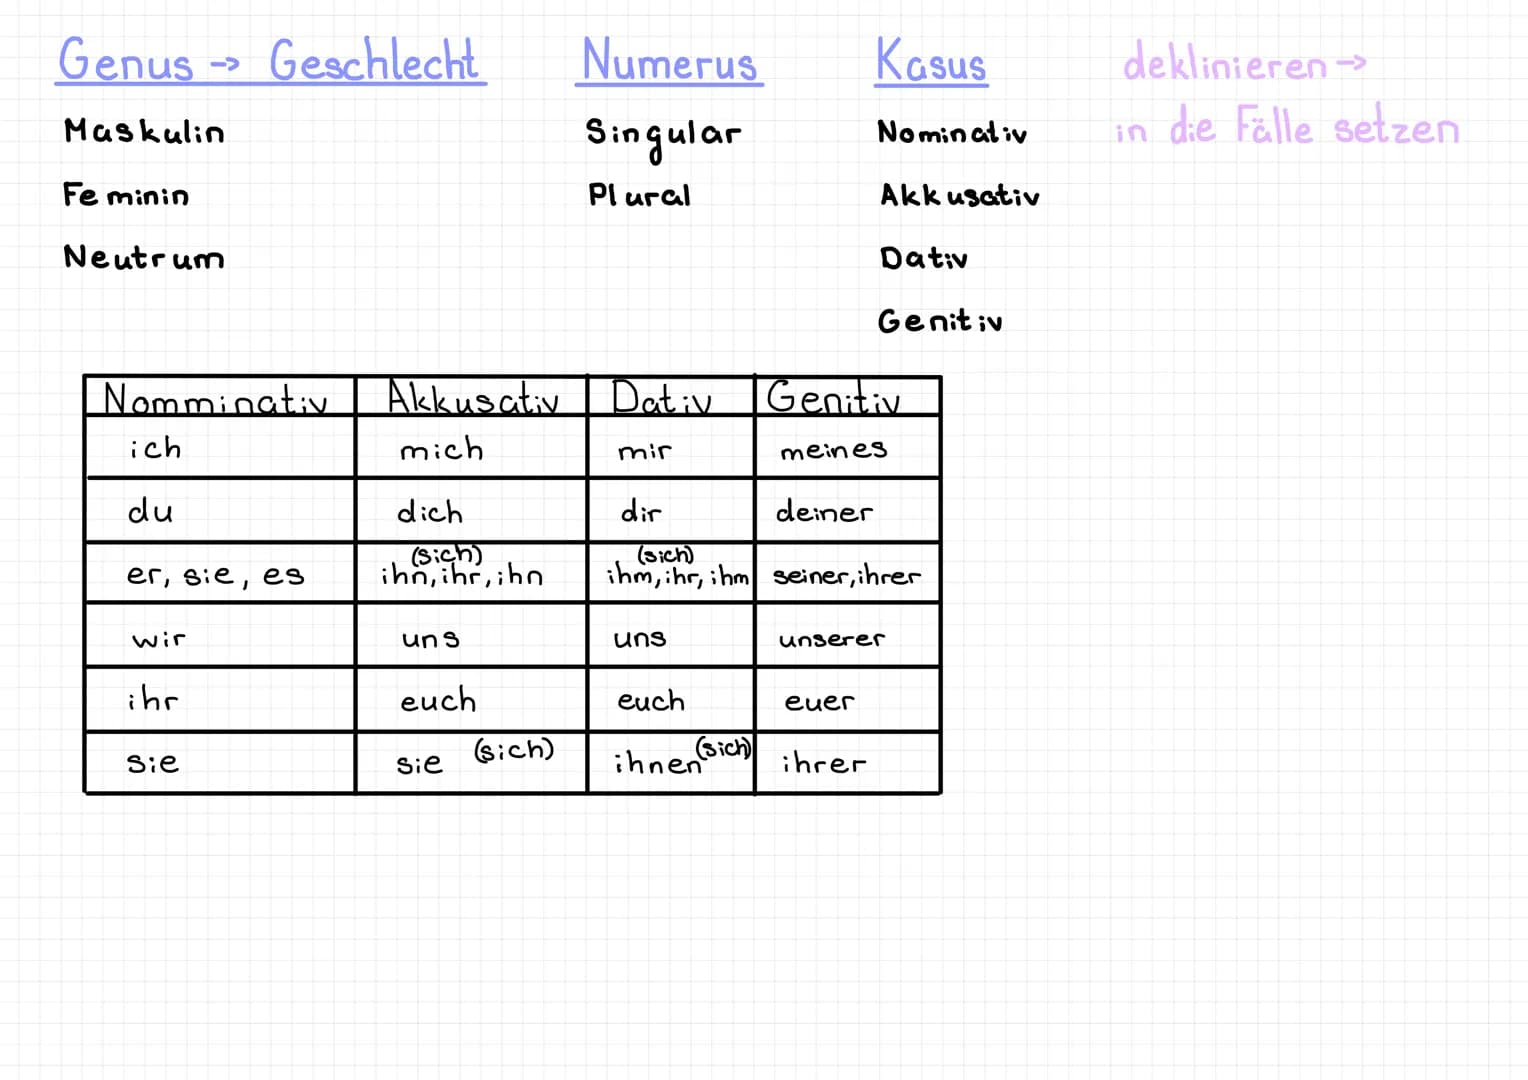 Genus -> Geschlecht Numerus Kasus deklinieren ->
Maskulin Singular Nominativ in die Fälle setzen
Feminin Plural Akkusativ
Neutrum Dativ
Genitiv
Nomminativ Akkusativ Dativ Genitiv
ich mich mir meines
du dich dir deiner
(sich) (sich)
er, sie, es ihn, ihr, ihn ihm, ihr, ihm seiner, ihrer
wir uns uns unserer
ihr euch euch euer
sie sie (sich) ihnen (sich) ihrer